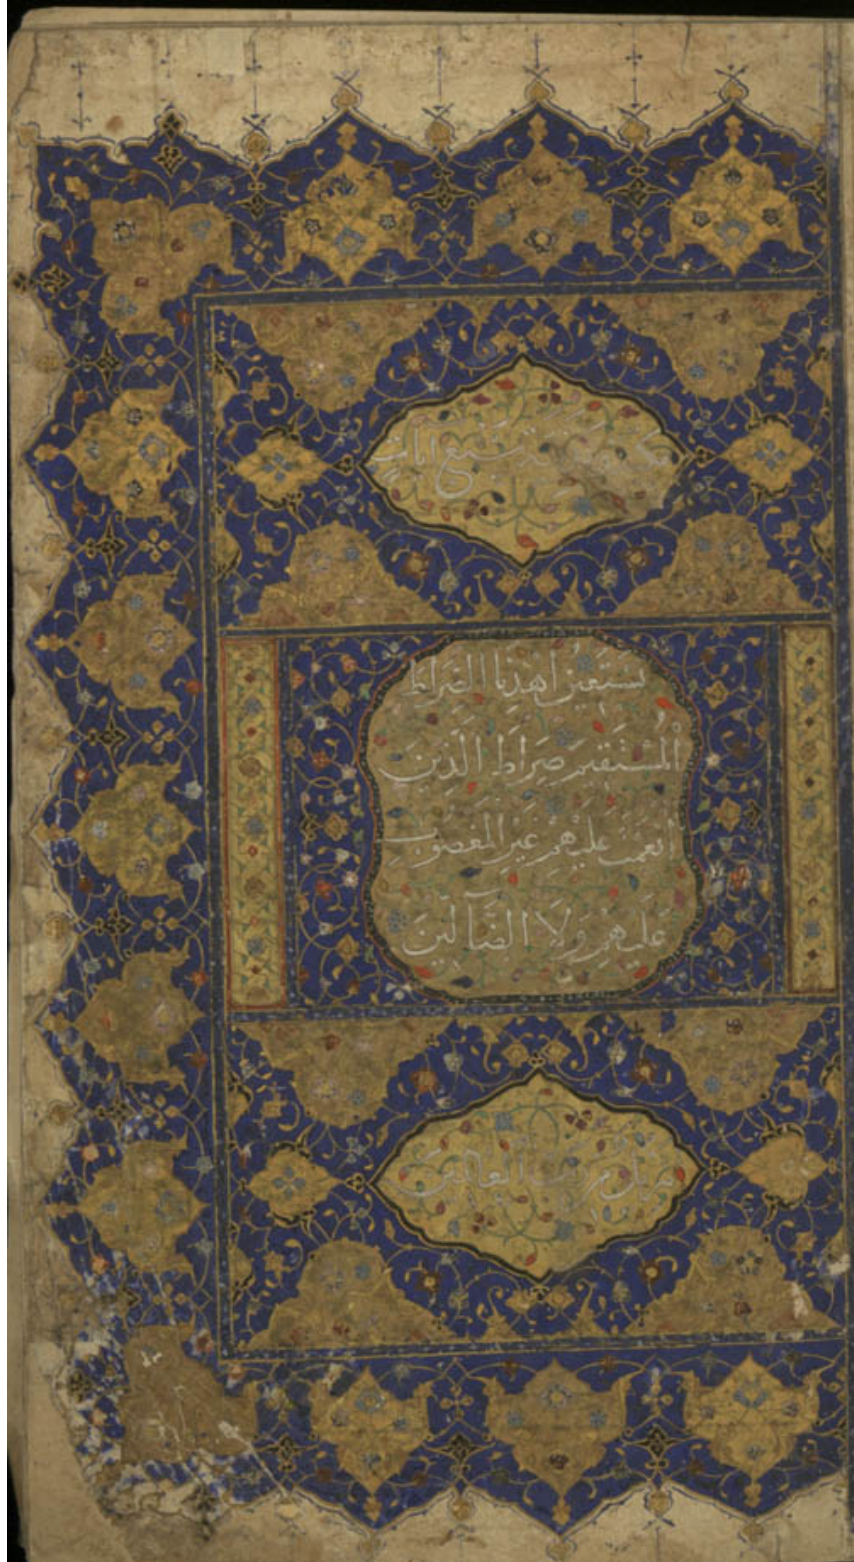 مكية سبع آيات
نَسْتَعِينُ اهْدِنَا الصِّرَاطَ
الْمُسْتَقِيمَ صِرَاطَ الَّذِينَ
أَنْعَمْتَ عَلَيْهِمْ غَيْرِ الْمَغْضُوبِ
عَلَيْهِمْ وَلَا الضَّالِّينَ
من رب العالمين